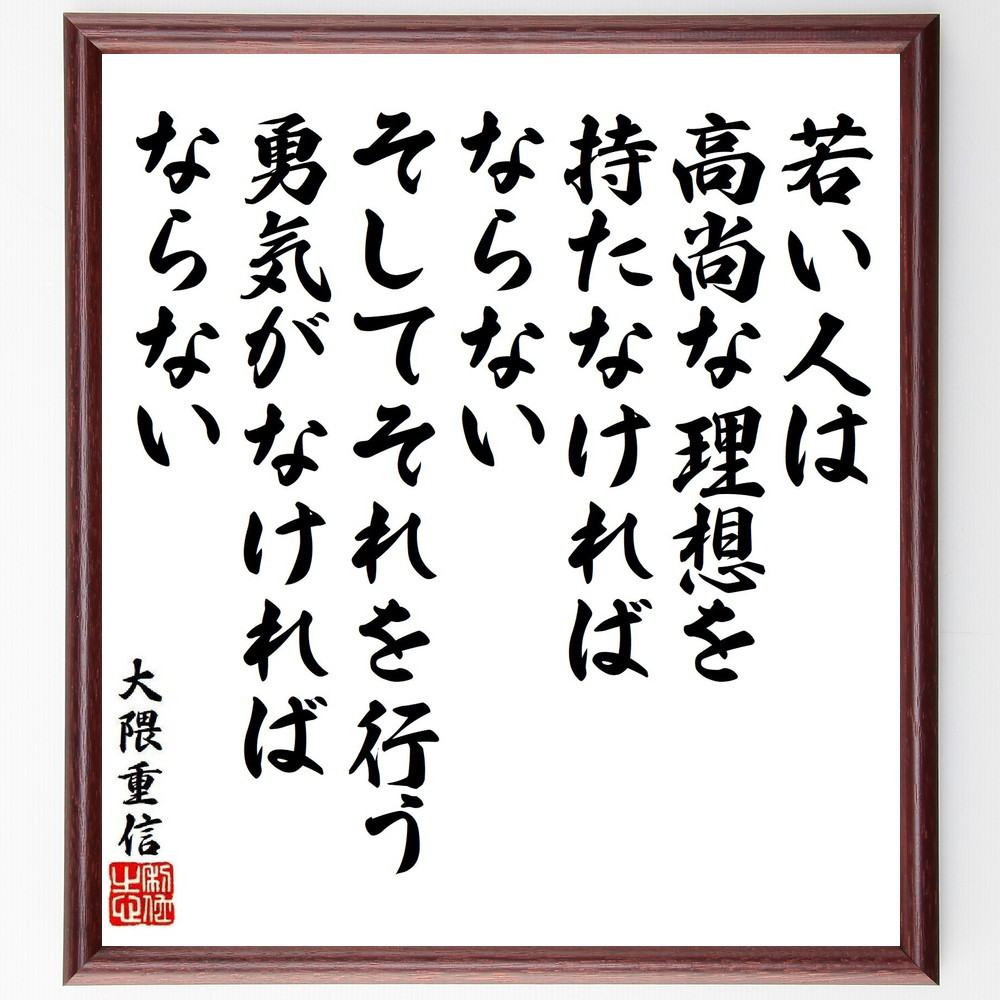 若い人は
高尚な理想を
持たなければ
ならない
そしてそれを行う
勇気がなければ
ならない
大隈重信